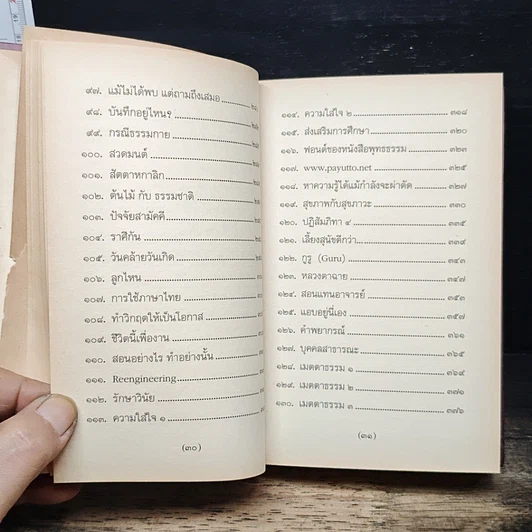 ๙๗. แม้ไม่ได้พบ แต่ถามถึงเสมอ
๙๘. บันทึกอยู่ไหน?
๙๙. กรณีธรรมกาย
๑๐๐. สวดมนต์
๑๐๑. สัตตาหกาลิก
๑๐๒. ต้นไม้ กับ ธรรมชาติ
๑๐๓. ปัจจัยสามัคคี
๑๐๔. ราศีกัน
๑๐๕. วันคล้ายวันเกิด
๑๐๖. ลูกไหน
๑๐๗. การใช้ภาษาไทย
๑๐๘. ทำวิกฤตให้เป็นโอกาส
๑๐๙. ชีวิตนี้เพื่องาน
๑๑๐. สอนอย่างไร ทำอย่างนั้น
๑๑๑. Reengineering
๑๑๒. รักษาวินัย
๑๑๓. ความใส่ใจ ๑
(๓๐)
๑๑๔. ความใส่ใจ ๒ ๓๑๘
๑๑๕. ส่งเสริมการศึกษา ๓๒๐
๑๑๖. ฟอนต์ของหนังสือพุทธธรรม ๓๒๒
๑๑๗. www.payutto.net ๓๒๕
๑๑๘. หาความรู้ได้แม้กำลังจะผ่าตัด ๓๒๗
๑๑๙. สุขภาพกับสุขภาวะ ๓๓๐
๑๒๐. ปฏิสัมภิทา ๔ ๓๓๕
๑๒๑. เลี้ยงสุนัขดีกว่า ๓๓๙
๑๒๒. กูรู (Guru) ๓๔๓
๑๒๓. หลวงตาฉาย ๓๔๗
๑๒๔. สอนแทนอาจารย์ ๓๕๓
๑๒๕. แอบอยู่นี่เอง ๓๕๗
๑๒๖. คำพยากรณ์
๑๒๗. บุคคลสาธารณะ ๓๖๕
๑๒๘. เมตตาธรรม ๑ ๓๖๙
๑๒๙. เมตตาธรรม ๒ ๓๗๑
๑๓๐. เมตตาธรรม ๓ ๓๗๖
(๓๑)